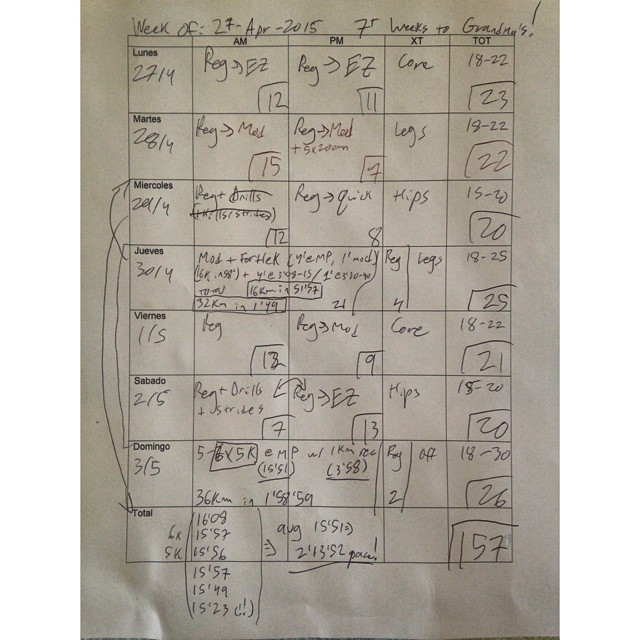 Week of: 27-Apr-2015 7 Weeks to Grandma's!
AM PM XT TOT
Lunes
27/4 Reg→EZ 12 Reg→EZ 11 Core 18-22 23
Martes
28/4 Reg→Mod 15 Reg→Mod
+ 5x200m 7 Legs 18-22 22
Miercoles
29/4 Reg+ Drills
12 Reg→quick 8 Hips 15-20 20
Jueves
30/4 Mod + Fartlek (4'@MP, 1'mod)
TOTAL 16Km in 51'57
32Km in 1'49 21 Reg 4 Legs 18-25 25
Viernes
1/5 Reg 12 Reg→Mod 9 Core 18-22 21
Sabado
2/5 Reg+ Drills
+ strides 7 Reg→EZ 13 Hips 18-20 20
Domingo
3/5 5-6x5K @MP w/ 1Km rec
(15'51) (3'58)
36Km in 1'58'59 Reg 2 Off 18-30 26
Total
6x
5K
16'08
15'57
15'56
15'57
15'49
15'23 (!!)
avg 15'51
2'13'52 pace!
157